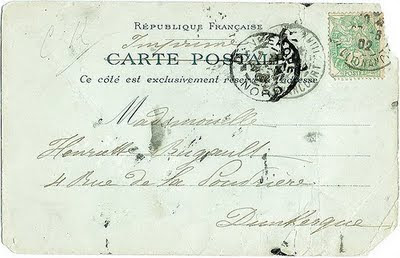 RÉPUBLIQUE FRANÇAISE
Imprimé
CARTE POSTALE
Ce côté est exclusivement réservé à l'adresse
NORD
02
Mademoiselle
Henriette
4 Rue de la Poudrière
Dunkerque